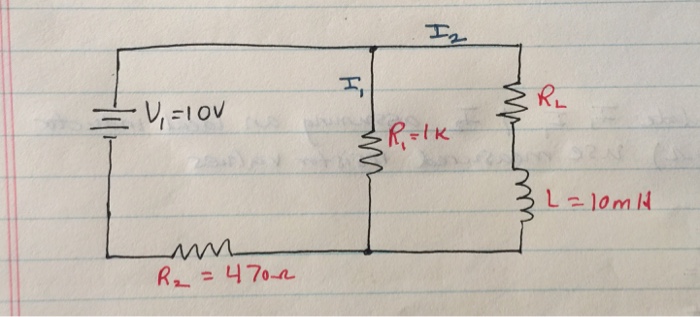 I₂
I₁
V₁=10V
R₁=1K
R_L
L=10mH
R₂ = 470Ω